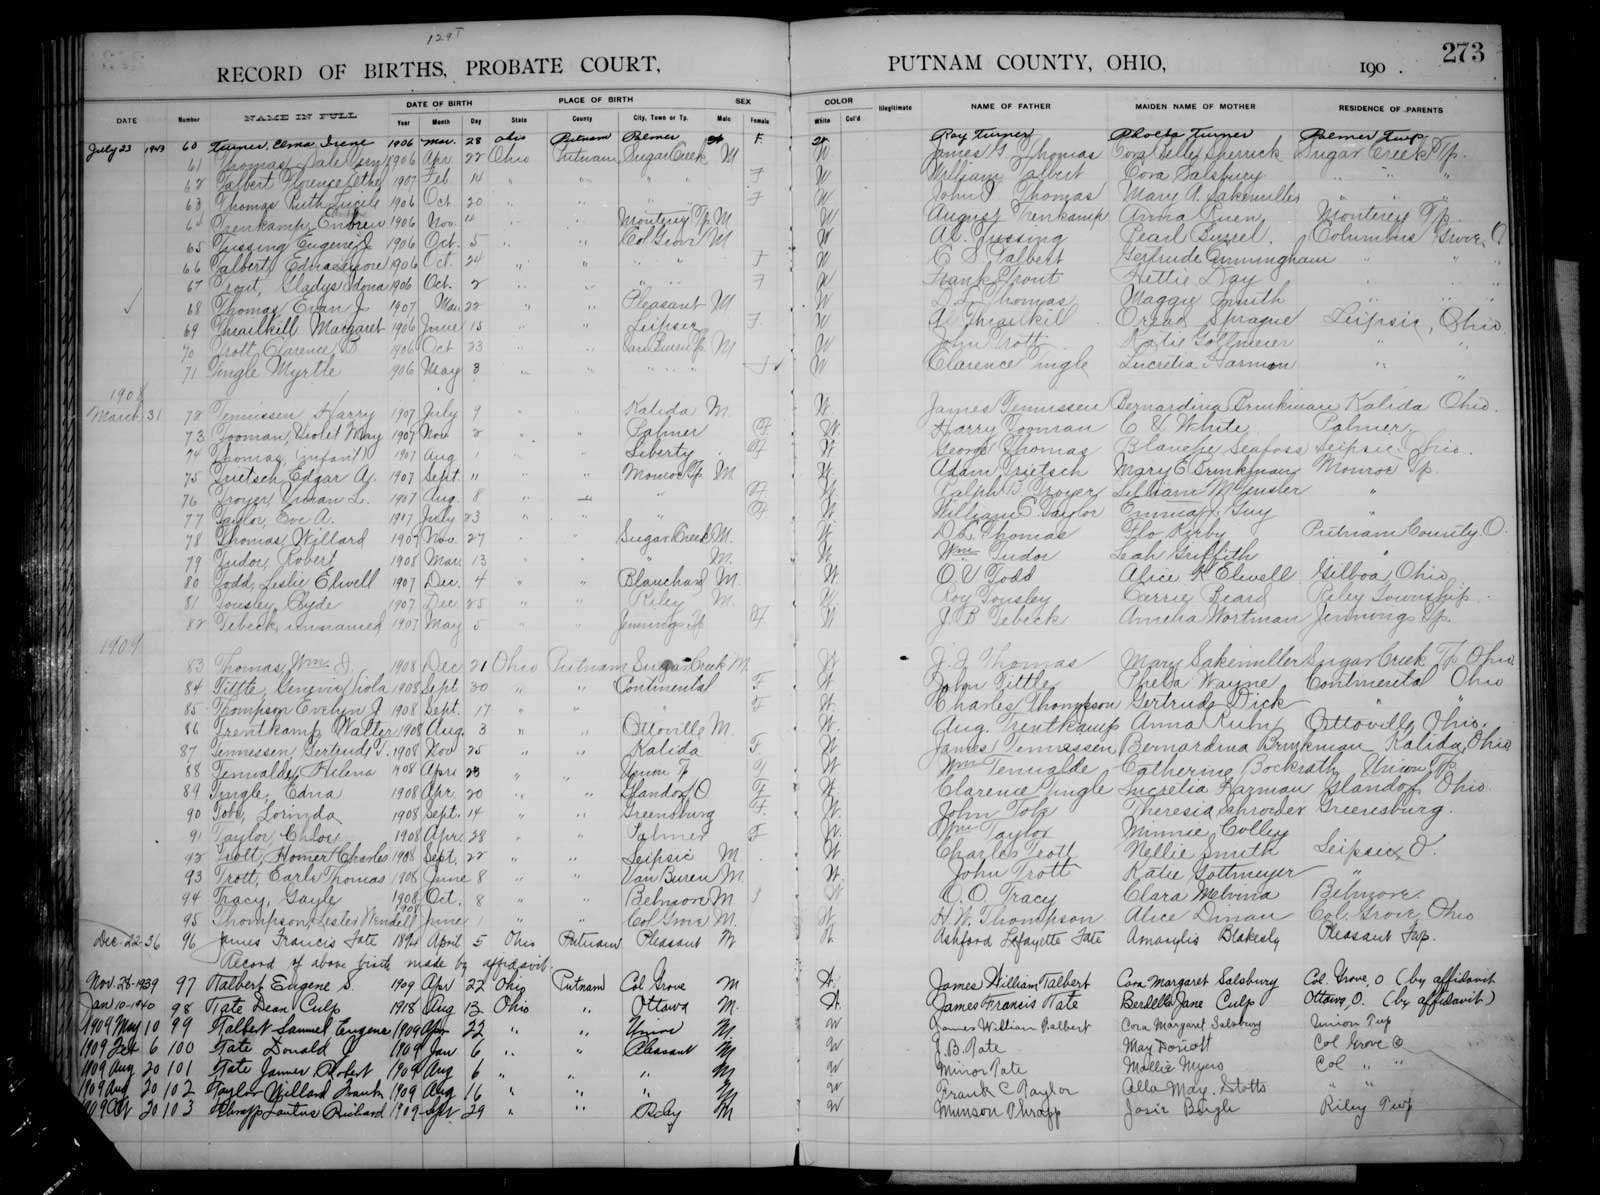 129T
RECORD OF BIRTHS, PROBATE COURT, PUTNAM COUNTY, OHIO, 190 . 273
DATE Number NAME IN FULL DATE OF BIRTH PLACE OF BIRTH SEX COLOR Illegitimate NAME OF FATHER MAIDEN NAME OF MOTHER RESIDENCE OF PARENTS
Year Month Day State County City, Town or Tp. Male Female White Col'd
July 23 1943 60 Turner, Elma Irene 1906 Mar. 28 Ohio Putnam Palmer F. W Roy Turner Phoeba Turner Palmer Twp
61 Thomas, Dale 1906 Apr 22 Ohio Putnam Sugar Creek M W James G Thomas Cora Belle Sherrick Sugar Creek Tp.
62 Talbert Florence Ethel 1907 Feb. 14 " " " " F W William Talbert Cora Salsbury " " "
63 Thomas Ruth Lucile 1906 Oct 20 " " " F W John J Thomas Mary A. Sakemiller " "
64 Trenkamp, 1906 Nov. " " Monterey Tp M W August Trenkamp Anna Ruen Monterey Tp.
65 Tussing Eugene J 1906 Oct. 5 " " Col Grove M W A. Tussing Pearl Burrel. Columbus Grove, O
66 Talbert, Edna 1906 Oct. 24 " " " " F W C S Talbert Gertrude Cunningham " " "
67 Trout, Gladys Idona 1906 Oct. 2 " " " " F W Frank Trout Hettie Day " " "
68 Thomas Evan J 1907 Mar 22 " " Pleasant M W D. L. Thomas Maggie Smith " " "
69 Thrailkill Margaret 1906 June 15 " " Leipsic F W Thrailkil Sprague Leipsic, Ohio
70 Trott, Clarence B 1906 Oct 23 " " Van Buren Tp. M W John Trott Katie Gottmeier " "
71 Tingle Myrtle 1906 May 3 " " " " " W Clarence Tingle Lucretia Harmon " "
1908
March 31 72 Tennissen Harry 1907 July 9 " " Kalida M. W. James Tennissen Bernardina Brinkman Kalida Ohio.
73 Tooman, Violet May 1907 Nov 2 " " Palmer F W Harry Tooman C E White Palmer
74 Thomas, (infant) 1907 Aug 1 " " Liberty F W George Thomas Blanche Seafoss Leipsic, Ohio.
75 Trietsch, Edgar A. 1907 Sept. 11 " " Monroe Tp M W. Adam Trietsch Mary E Brinkman Monroe Tp.
76 Troyer, Vivian L. 1907 Aug. 8 " " " F W Ralph B Troyer Lillian "
77 Taylor, Eve A. 1907 July 23 " " " F W William E Taylor Emma Guy "
78 Thomas Willard 1907 Nov. 27 " " Sugar Creek M. W D L Thomas Flo Kirby Putnam County O.
79 Tudor, Robert 1908 Mar. 13 " " " M. W Wm Tudor Leah Griffith "
80 Todd, Leslie Elwell 1907 Dec. 4 " " Blanchard M. W O. V Todd Alice Elwell Gilboa, Ohio
81 Tousley, Clyde 1907 Dec 25 " " Riley M. W Roy Tousley Carrie Beard Riley Township.
82 Tebeck, unnamed 1907 May 5 " " Jennings Tp F W J. B Tebeck Amelia Wortman Jennings Tp.
1909
83 Thomas, Wm. J. 1908 Dec 21 Ohio Putnam Sugar Creek M. W J. J Thomas Mary Sakemiller Sugar Creek Tp Ohio
84 Tittle, Genevive Viola 1908 Sept. 30 " " Continental F W John Tittle Wayne, Continental Ohio
85 Thompson Evelyn J 1908 Sept. 17 " " " F W. Charles Thompson Gertrude Dick "
86 Trentkamp Walter 1908 Aug. 3 " " Ottoville M. W. Aug. Trentkamp Anna Ruhn Ottoville Ohio.
87 Tennessen, Gertrude V. 1908 Nov 25 " " Kalida F. W James Tennessen Bernardina Brinkman Kalida, Ohio
88 Tenwalde, Hilena 1908 Apr 23 " " Union Tp F W Wm Tenwalde Catherine Bockrath Union Tp
89 Tingle, Edna 1908 Apr. 20 " " Glandorf O F W Clarence Tingle Lucretia Glandorf Ohio.
90 Tobe, Lorinda 1908 Sept. 14 " " Greensburg F. W. John Tobe Theresia Schroder Greensburg.
91 Taylor, Chloe 1908 Apr. 28 " " Palmer F W. Wm Taylor Minnie Colley
92 Trott, Homer Charles 1908 Sept. 22 " " Leipsic M W Charles Trott Nellie Smith Leipsic, O.
93 Trott, Earl Thomas 1908 June 8 " " Van Buren M. W. John Trott Katie Gottmeyer "
94 Tracy, Gayle 1908 Oct. 8 " " Belmore M W O. O. Tracy Clara Melvina Belmore.
95 Thompson, Lester Wendell 1908 June 1 " " Col. Grove M. W. H. W. Thompson Alice Diman Col. Grove Ohio
Dec-22-36 96 James Francis Tate 1894 April 5 Ohio Putnam Pleasant M W. Ashford Lafayette Tate Amarylis Blakesly Pleasant Twp.
Record of above birth made by affidavit.
Nov. 28-1939 97 Talbert Eugene S. 1909 Apr 22 Ohio Putnam Col Grove M W. James William Talbert Cora Margaret Salsbury Col. Grove, O (by affidavit
Jan 10-1940 98 Tate Dean Culp 1918 Aug 13 Ohio " Ottawa M. W. James Francis Tate Berdella Jane Culp Ottawa, O. (by affidavit)
1909 May 10 99 Talbert Samuel Eugene 1909 Apr 22 " " Union M W James William Talbert Cora Margaret Salsbury Union Twp
1909 Feb 6 100 Tate Donald J 1909 Jan 6 " " Pleasant M W J. B. Tate May Dorsott Col Grove O
1909 Aug 20 101 Tate James Robert 1909 Aug 6 " " " M W Minor Tate Mollie Myers Col " "
1909 Aug 20 102 Taylor Willard Frank 1909 Aug 16 " " " M W Frank C Taylor Alla May Stotts " "
1909 Oct 20 103 Thrapp Richard 1909 Sept 29 " " Riley M W Munson Thrapp Josie Bogle Riley Twp